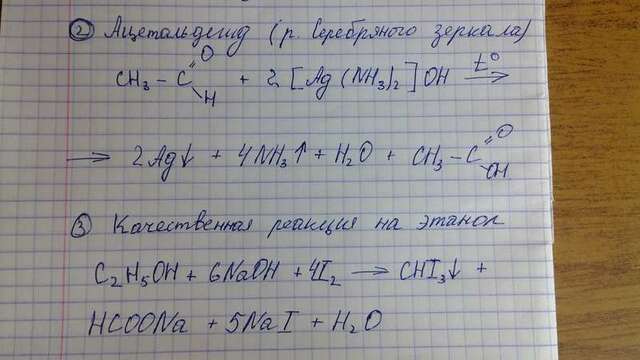 ② Ацетальдегид (р. Серебряного зеркала)
CH₃ – C =O –H + 2 [Ag(NH₃)₂]OH t° →
→ 2Ag↓ + 4NH₃↑ + H₂O + CH₃ – C =O –OH
③ Качественная реакция на этанол
C₂H₅OH + 6NaOH + 4I₂ → CHI₃↓ +
HCOONa + 5NaI + H₂O